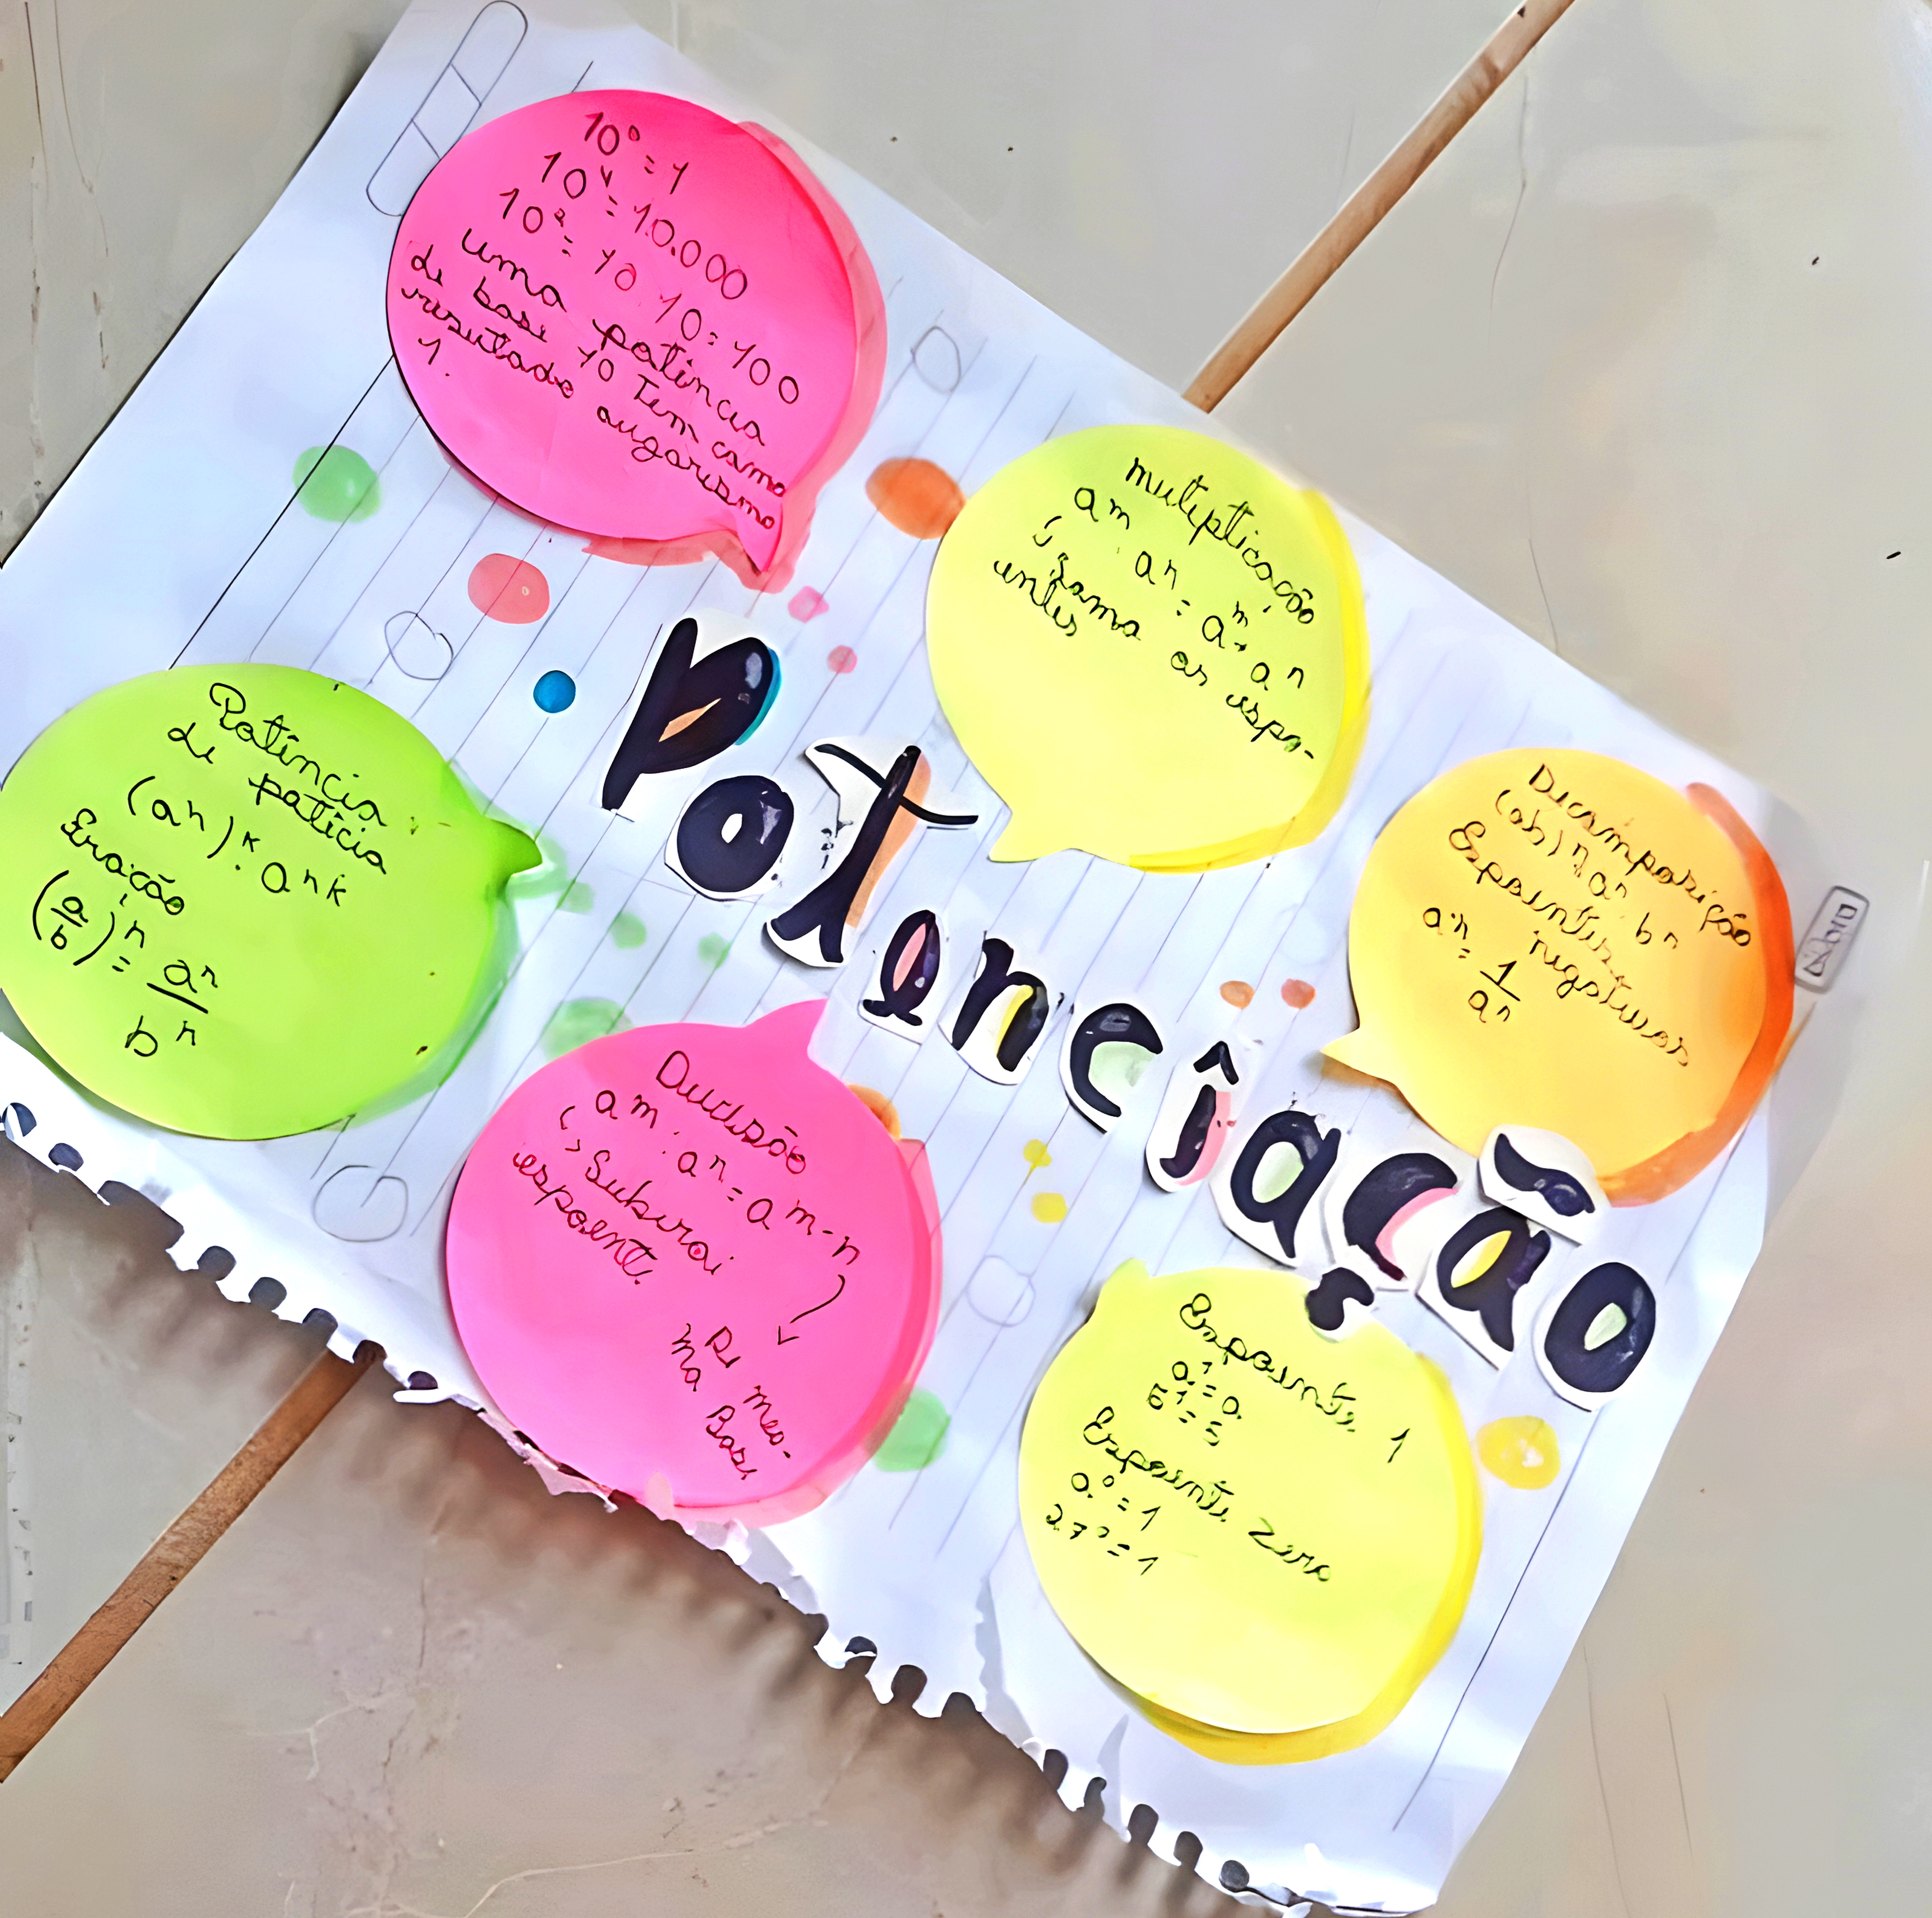 10⁰ = 1
10⁴ = 10.000
10² = 10.10 = 100
uma potência
de base 10 Tem como
resutado augarismo
1.
mutiplicação
am . an = am . an
↳ Soma os espo-
entes
Potência
de patícia
(an)k . ank
Eração
(a/b)n = an/bn
Potencîação
Decomposição
(ab)n = an . bn
Espoentes negativos
a-n = 1/an
Divisão
am : an = am-n
↳ Subirai
espoente
Di meo-
na Base
Espoente 1
a¹ = a
5¹ = 5
Espoente Zero
a⁰ = 1
27⁰ = 1